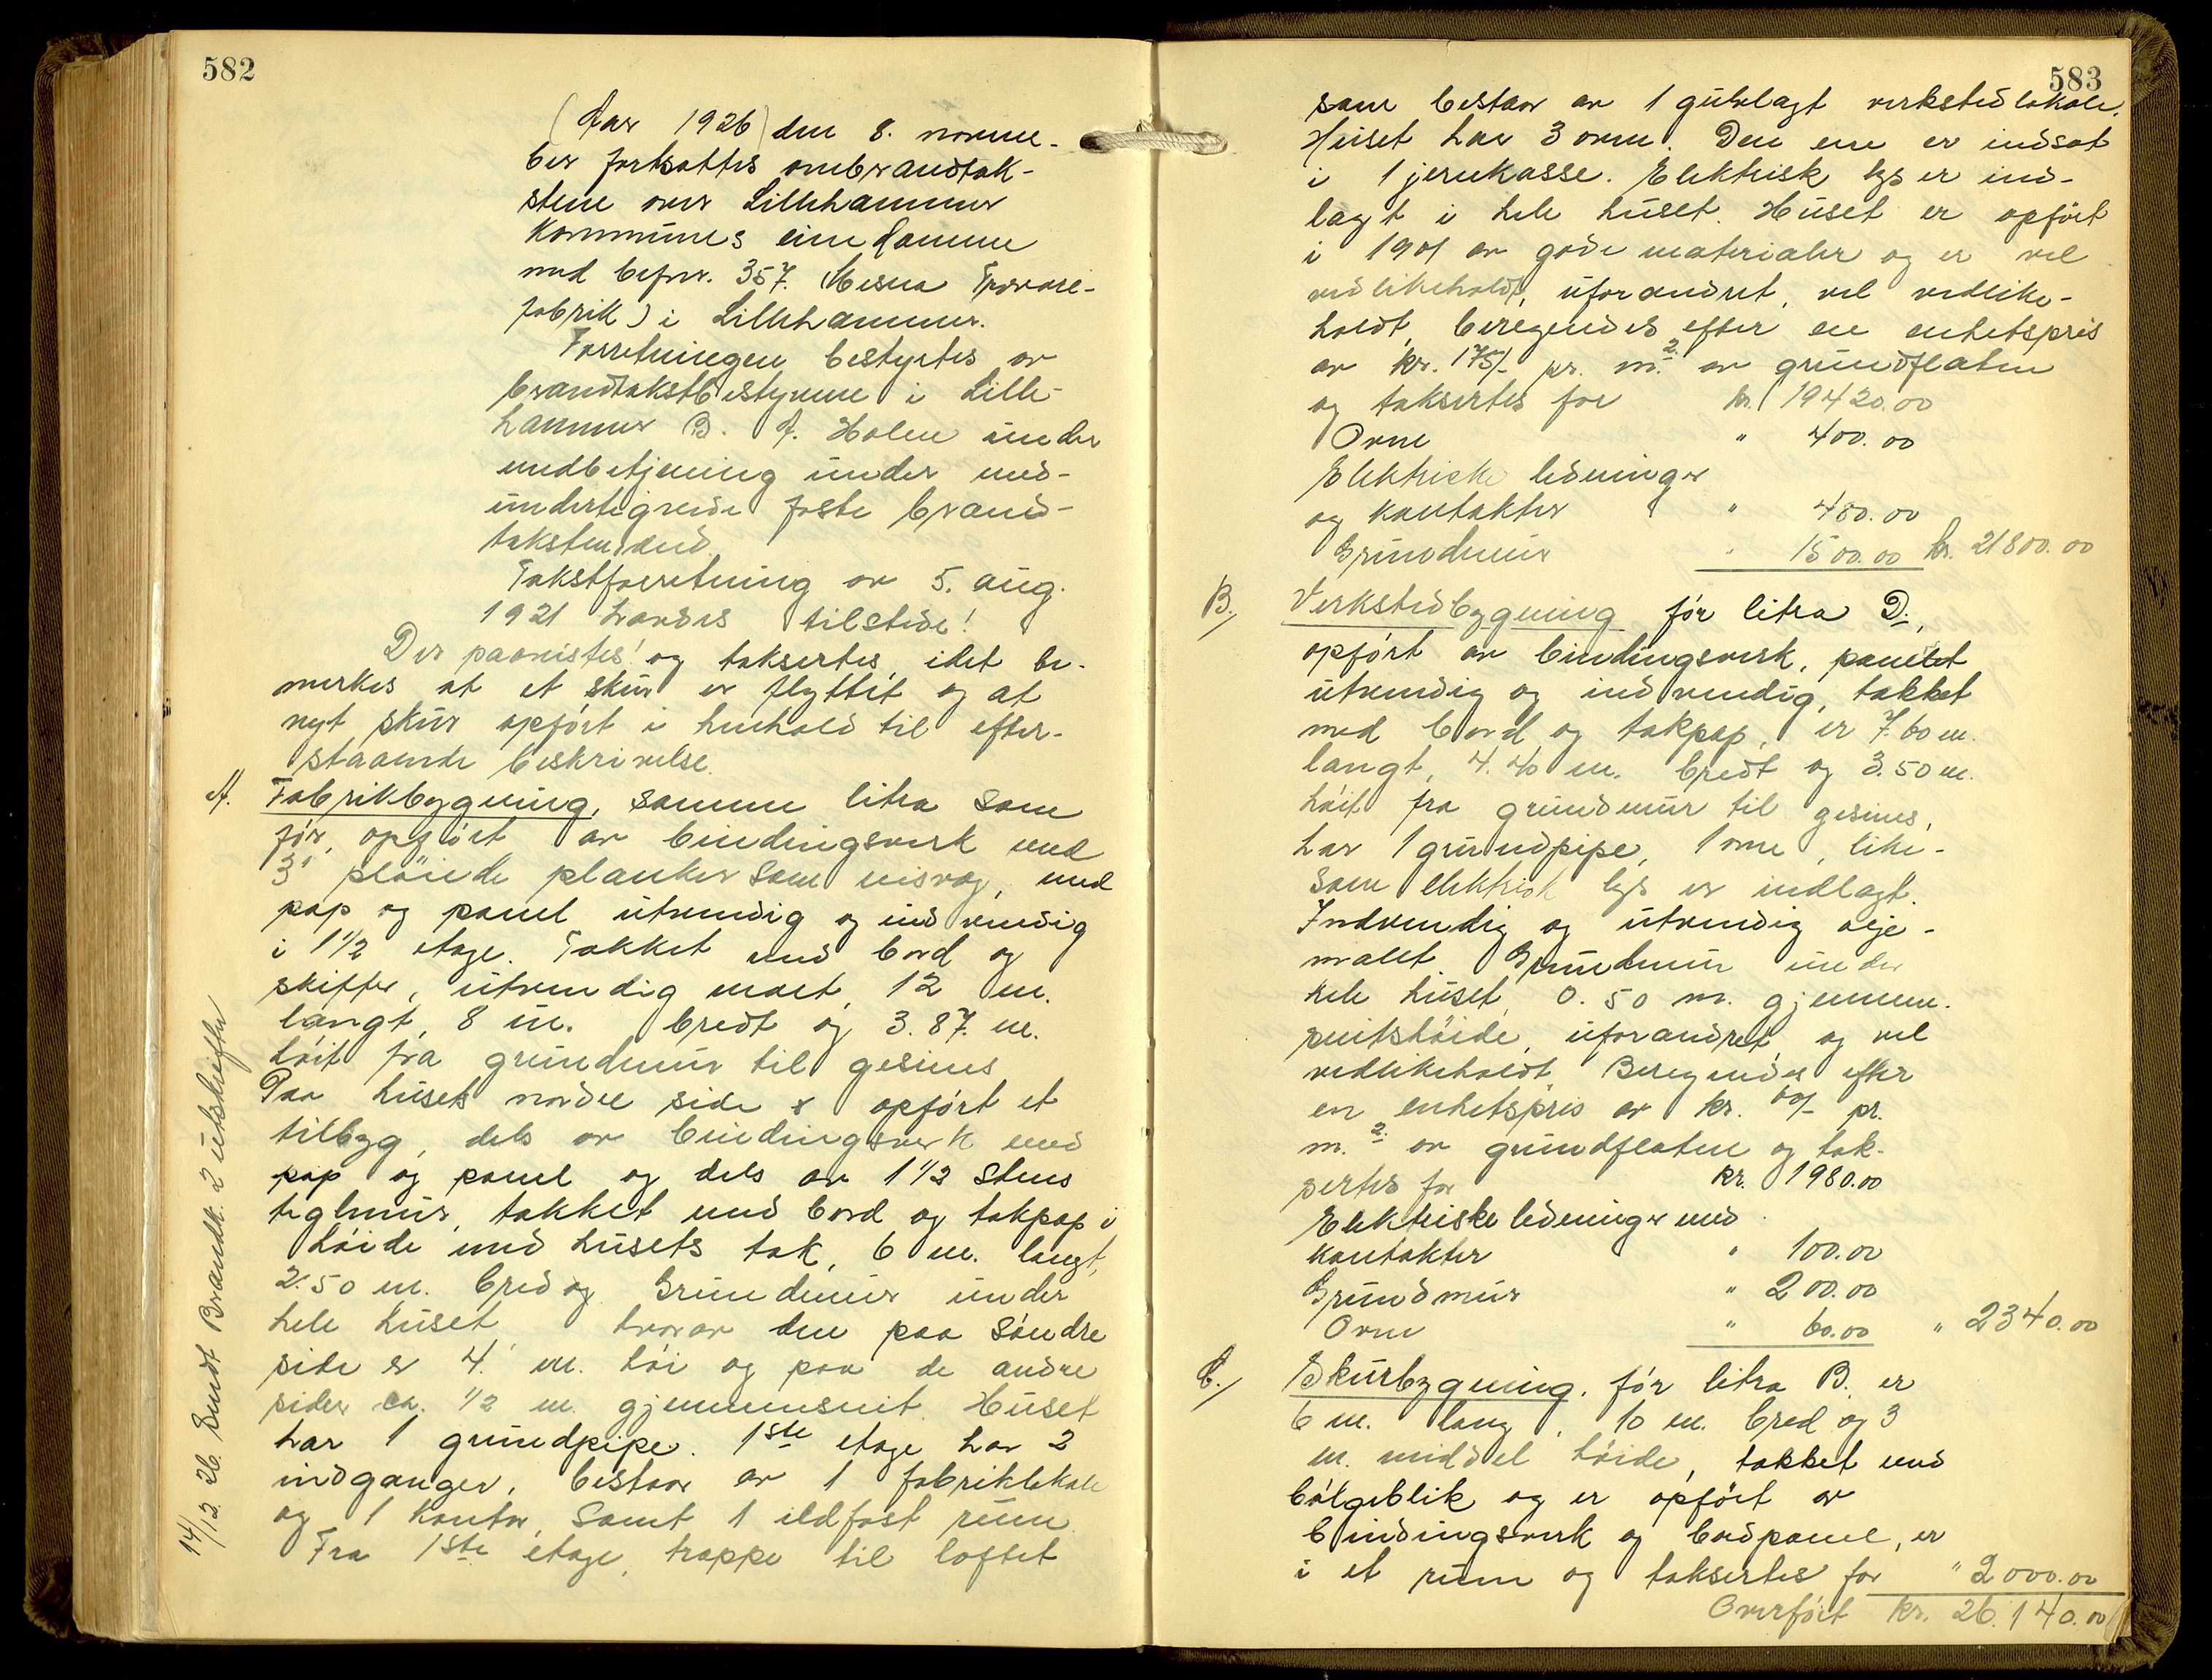 582
(Aar 1926) den 8. novem-
ber fortsattes ombrandtak-
stene over Lillehammer
Kommunes eiendomme
med befnr. 357. (Mesna Trævare-
fabrik) i Lillehammer.
Forretningen bestyrtes av
brandtakstbestyrer i Lille-
hammer B. A. Holen under
medbetjening under med-
undertegnede faste brand-
takstmænd.
Takstforretning av 5. aug.
1921 havdes tilstede!
Der paavistes! og taksertes idet be-
merkes at et skur er flyttet og at
nyt skur opført i henhold til efter-
staaende beskrivelse.
A. Fabrikbygning, samme litra som
før, opført av bindingsverk med
3" pløiede planker som, med
pap og panel utvendig og indvendig
i 1 1/2 etage. Takket med bord og
skiffer, utvendig malt, 12 m.
langt, 8 m. bredt og 3.87 m.
høit fra grundmur til gesims
Paa husets nordre side er opført et
tilbyg, dels av bindingsverk med
pap og panel og dels av 1 1/2 stens
teglmur, takket med bord og takpap i
høide med husets tak, 6 m. langt,
2.50 m. bred og Grundmur under
hele huset, hvorav den paa søndre
side er 4. m. høi og paa de andre
sider ca. 1/2 m. gjennemsnit. Huset
har 1 grundpipe. 1ste etage har 2
indganger, bestaar av 1 fabriklokale
og 1 kontor, samt 1 ildfast rum
Fra 1ste etage, trappe til loftet
14/12 26. Sendt Brandk. 2 utskrifter
583
som bestaar av 1 gulvlagt verkstedlokale.
Huset har 3 ovne. Den ene er indsat
i 1 jernkasse. Elektrisk lys er ind-
lagt i hele huset. Huset er opført
i 1901 av gode materialer og er vel
vedlikeholdt, uforandret, vel vedlike-
holdt, beregnedes efter en enhetspris
av kr. 175/- pr. m.2 av grundflaten
og taksertes for kr. 19420.00
Ovne " 400.00
Elektriske ledninger
og kontakter " 480.00
Grundmur " 1500.00 kr. 21800.00
B./ Verkstedbygning før litra D.,
opført av bindingsverk, panelet
utvendig og indvendig, takket
med bord og takpap, er 7.60 m.
langt, 4.40 m. bredt og 3.50 m.
høit fra grundmur til gesims,
har 1 grundpipe, 1 ovne, like-
som elektrisk lys er indlagt.
Indvendig og utvendig olje-
malet. Grundmur under
hele huset, 0.50 m. gjennem-
snitshøide, uforandret og vel
vedlikeholdt. Beregnedes efter
en enhetspris av kr. 60/- pr.
m.2 av grundflaten og tak-
sertes for kr. 1980.00
Elektriske ledninger med
kontakter " 100.00
Grundmur " 200.00
Ovne " 60.00 " 2340.00
C./ Skurbygning, før litra B. er
6 m. lang, 10 m. bred og 3
m. middel høide, takket med
bølgeblik og er opført av
bindingsverk og bordpanel, er
i et rum og taksertes for " 2000.00
Overført kr. 26.140.00